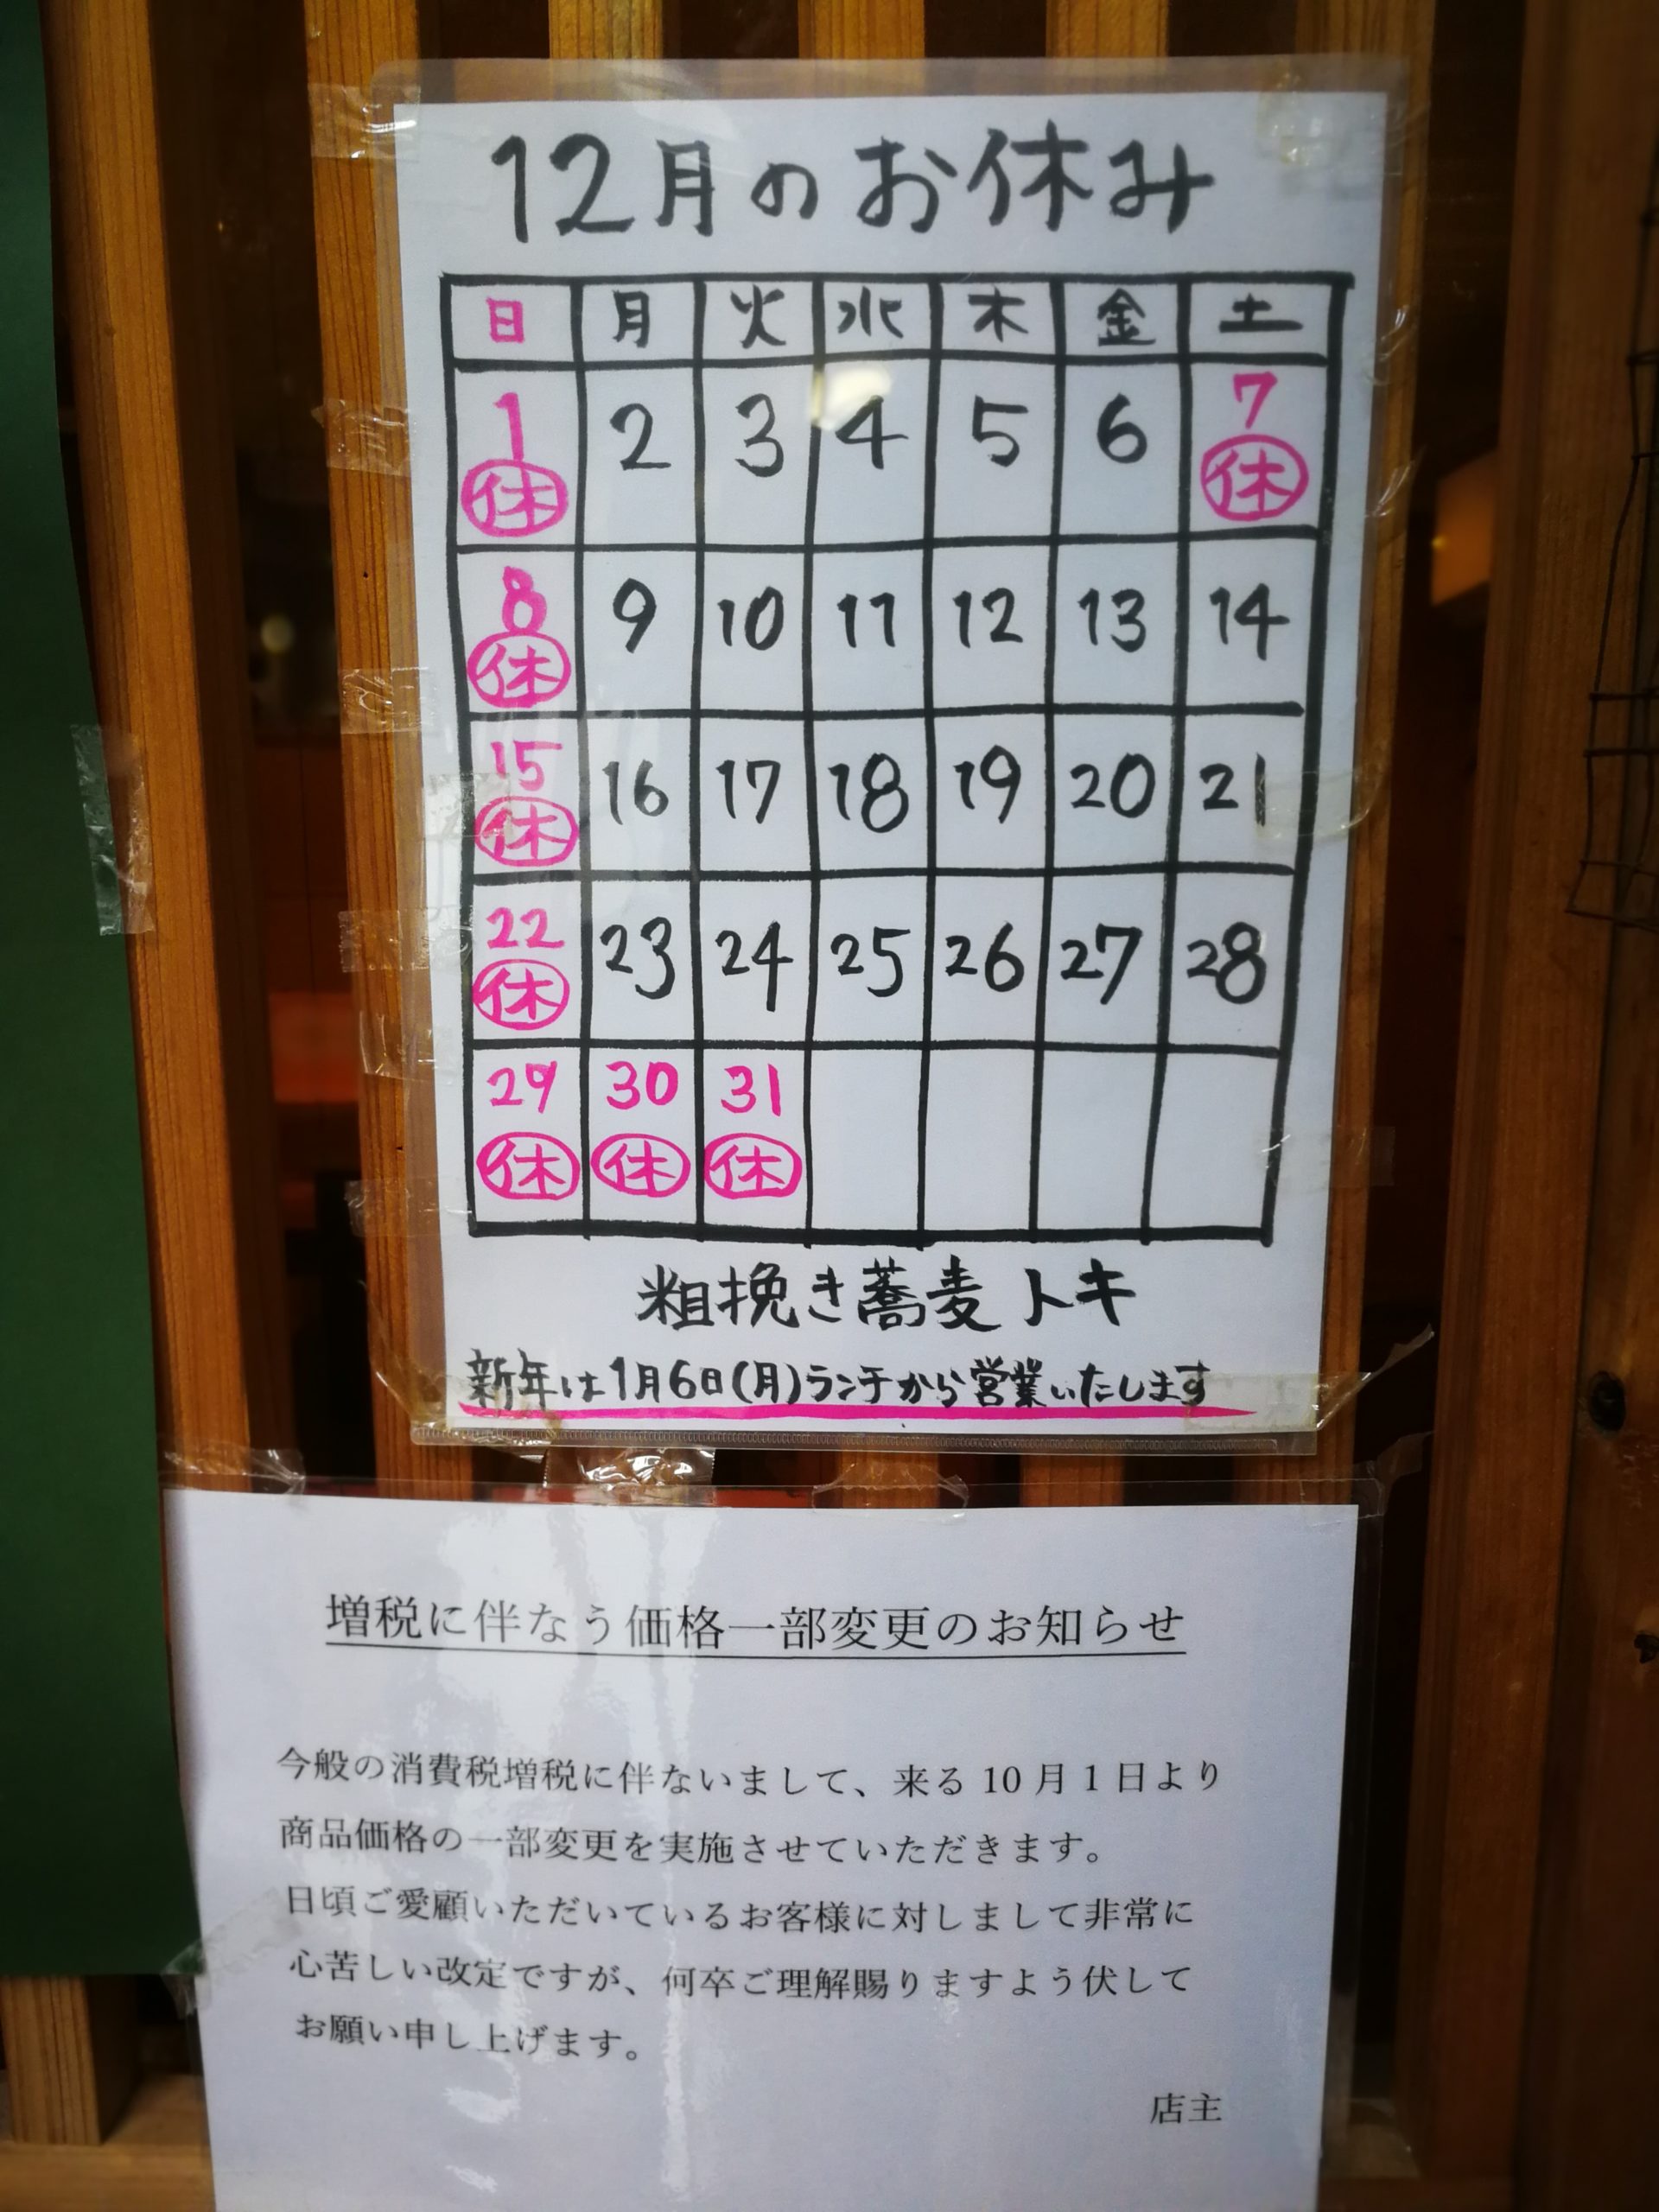 12月のお休み
日 月 火 水 木 金 土
1 2 3 4 5 6 7
休 休
8 9 10 11 12 13 14
休
15 16 17 18 19 20 21
休
22 23 24 25 26 27 28
休
29 30 31
休 休 休
粗挽き蕎麦 トキ
新年は1月6日(月)ランチから営業いたします
増税に伴なう価格一部変更のお知らせ
今般の消費税増税に伴ないまして、来る 10 月 1 日より
商品価格の一部変更を実施させていただきます。
日頃ご愛顧いただいているお客様に対しまして非常に
心苦しい改定ですが、何卒ご理解賜りますよう伏して
お願い申し上げます。
店主